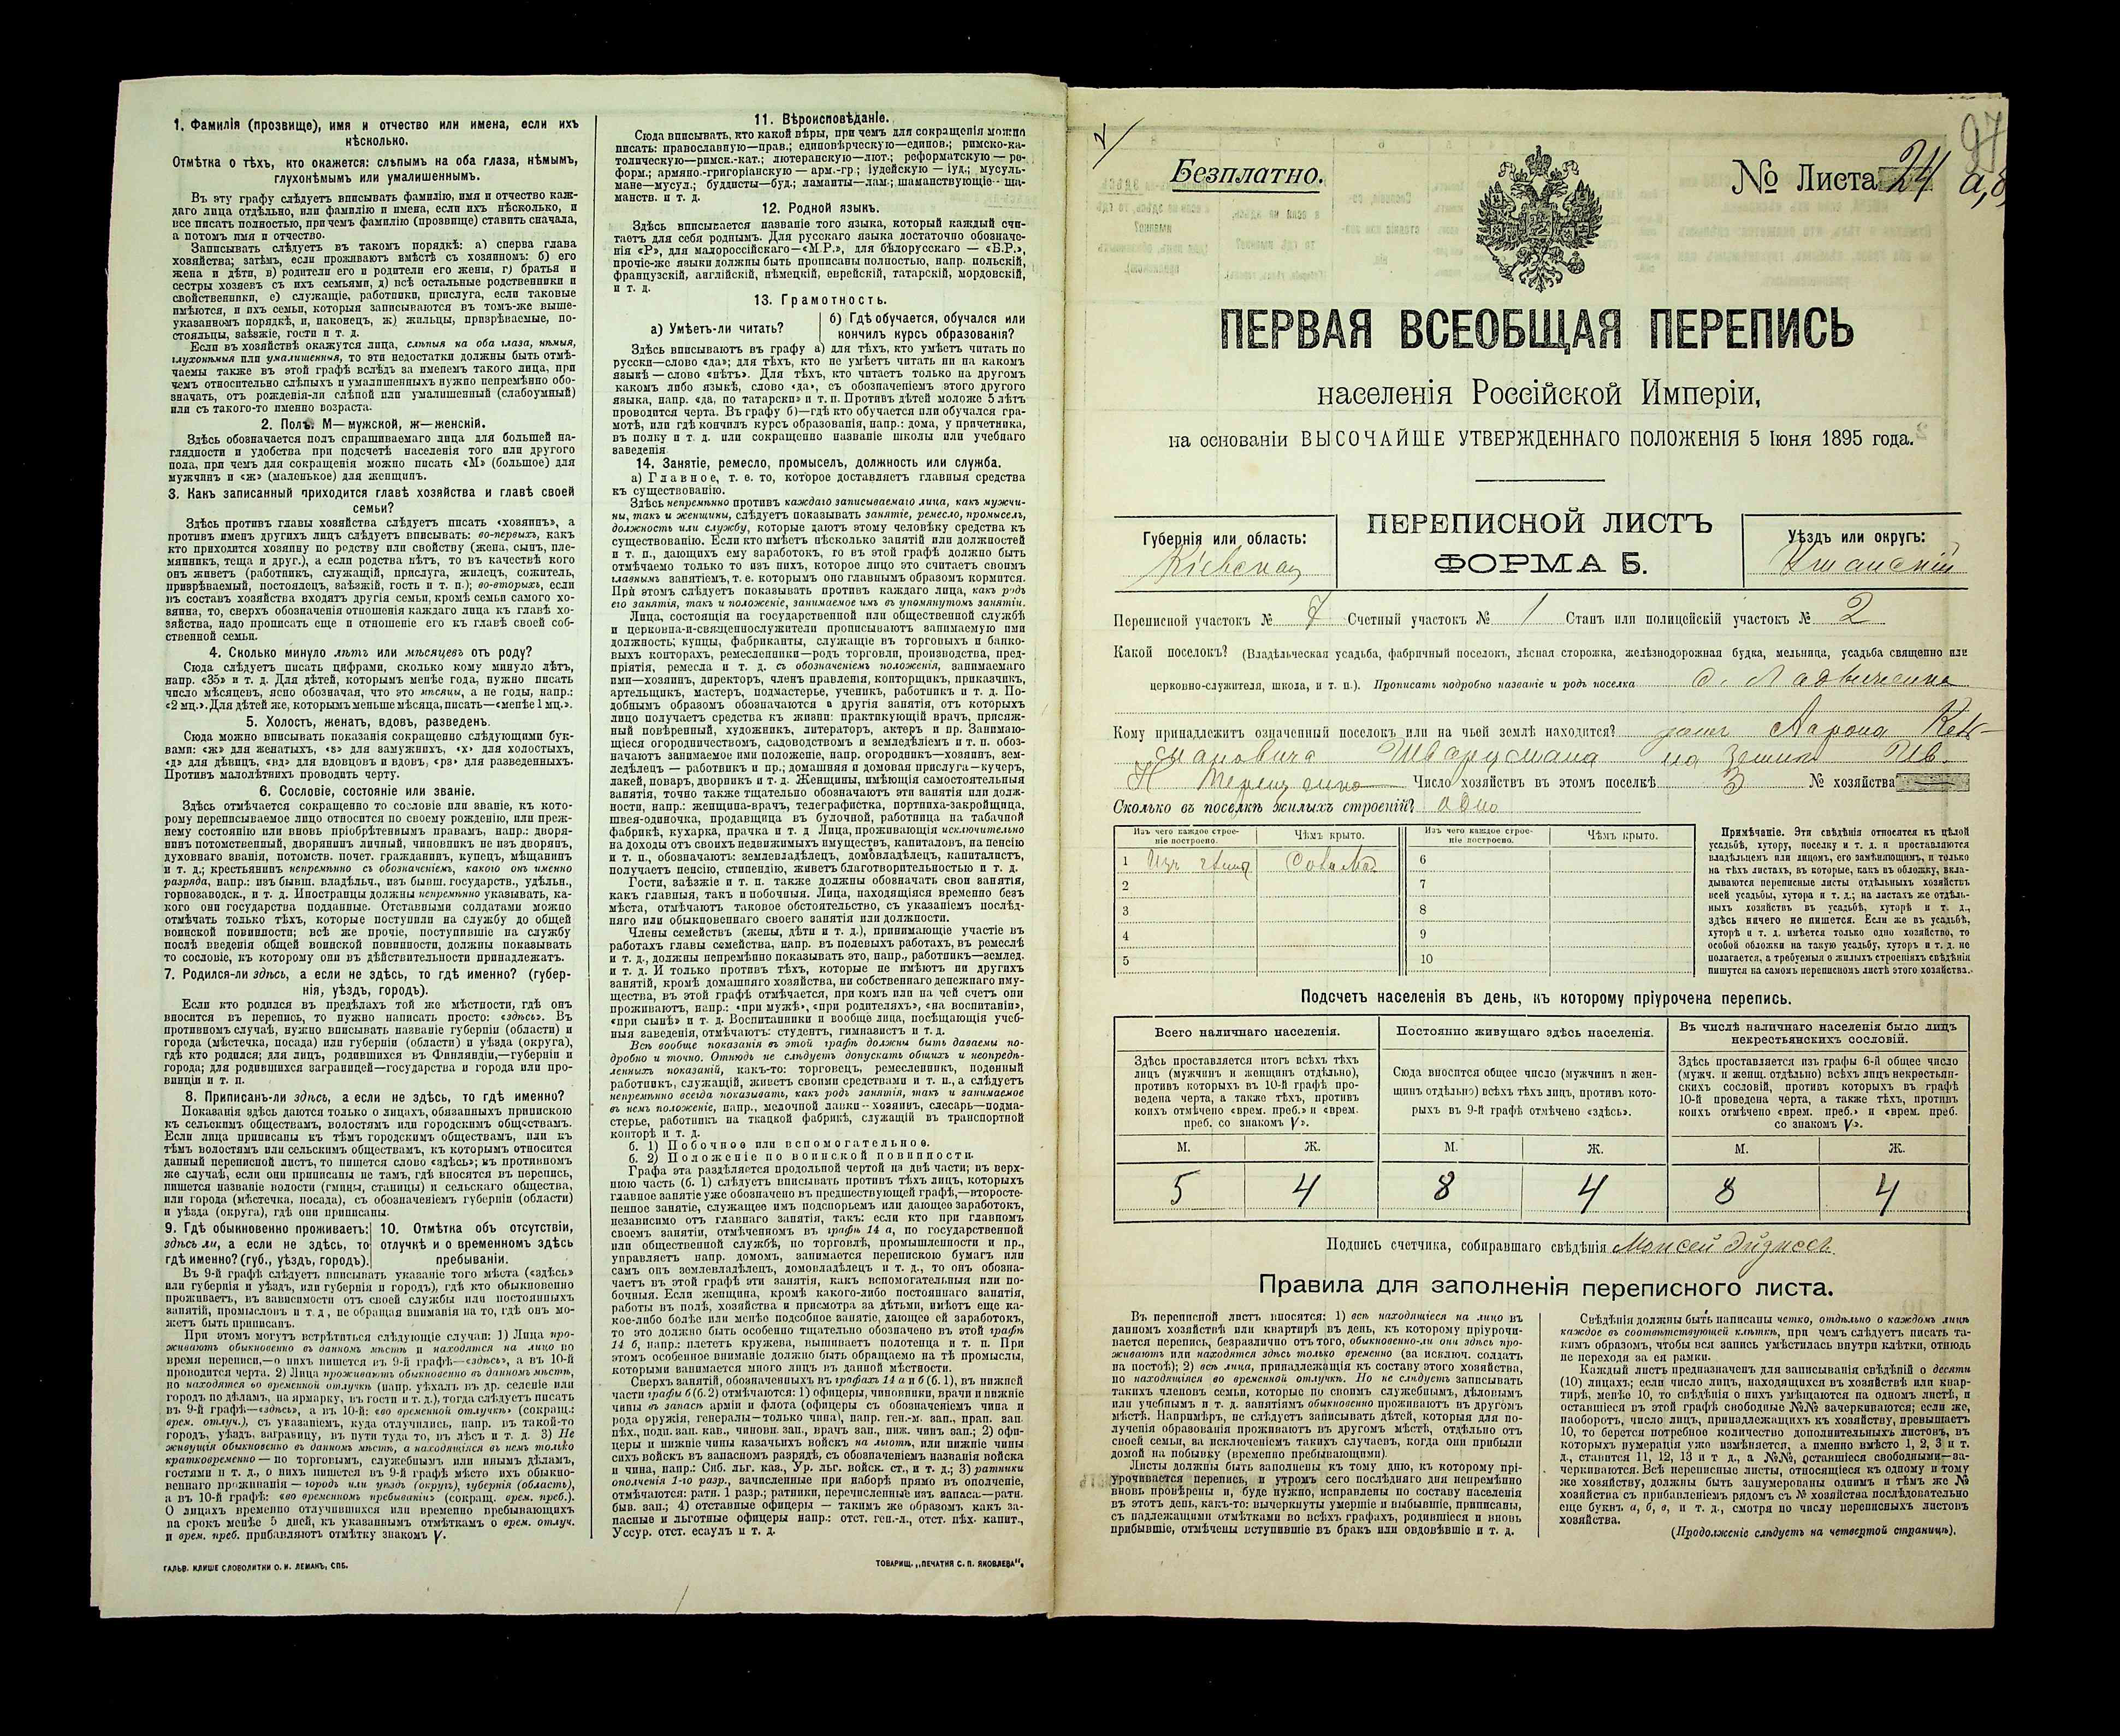 1. Фамилія (прозвище), имя и отчество или имена, если ихъ
нѣсколько.
Отмѣтка о тѣхъ, кто окажется: слѣпымъ на оба глаза, нѣмымъ,
глухонѣмымъ или умалишеннымъ.
Въ эту графу слѣдуетъ вписывать фамилію, имя и отчество каж-
даго лица отдѣльно, или фамилію и имена, если ихъ нѣсколько, и
все писать полностью, при чемъ фамилію (прозвище) ставить сначала,
а потомъ имя и отчество.
Записывать слѣдуетъ въ такомъ порядкѣ: а) сперва глава
хозяйства; затѣмъ, если проживаютъ вмѣстѣ съ хозяиномъ: б) его
жена и дѣти, в) родители его и родители его жены, г) братья и
сестры хозяевъ съ ихъ семьями, д) всѣ остальные родственники и
свойственники, е) служащіе, работники, прислуга, если таковые
имѣются, и ихъ семьи, которыя записываются въ томъ-же выше-
указанномъ порядкѣ, и, наконецъ, ж) жильцы, призрѣваемые, по-
стояльцы, заѣзжіе, гости и т. д.
Если въ хозяйствѣ окажутся лица, слѣпыя на оба глаза, нѣмыя,
глухонѣмыя или умалишенныя, то эти недостатки должны быть отмѣ-
чаемы также въ этой графѣ вслѣдъ за именемъ такого лица, при
чемъ относительно слѣпыхъ и умалишенныхъ нужно непремѣнно обо-
значать, отъ рожденія-ли слѣпой или умалишенный (слабоумный)
или съ такого-то именно возраста.
2. Полъ. М—мужской, ж—женскій.
Здѣсь обозначается полъ спрашиваемаго лица для большей на-
глядности и удобства при подсчетѣ населенія того или другого
пола, при чемъ для сокращенія можно писать «М» (большое) для
мужчинъ и «ж» (маленькое) для женщинъ.
3. Какъ записанный приходится главѣ хозяйства и главѣ своей
семьи?
Здѣсь противъ главы хозяйства слѣдуетъ писать «хозяинъ», а
противъ именъ другихъ лицъ слѣдуетъ вписывать: во-первыхъ, какъ
кто приходится хозяину по родству или свойству (жена, сынъ, пле-
мянникъ, теща и друг.), а если родства нѣтъ, то въ качествѣ кого
онъ живетъ (работникъ, служащій, прислуга, жилецъ, сожитель,
призрѣваемый, постоялецъ, заѣзжій, гость и т. п.); во-вторыхъ, если
въ составъ хозяйства входятъ другія семьи, кромѣ семьи самого хо-
зяина, то, сверхъ обозначенія отношенія каждаго лица къ главѣ хо-
зяйства, надо прописать еще и отношеніе его къ главѣ своей соб-
ственной семьи.
4. Сколько минуло лѣтъ или мѣсяцевъ отъ роду?
Сюда слѣдуетъ писать цифрами, сколько кому минуло лѣтъ,
напр. «35» и т. д. Для дѣтей, которымъ менѣе года, нужно писать
число мѣсяцевъ, ясно обозначая, что это мѣсяцы, а не годы, напр.:
«2 мц.». Для дѣтей же, которымъ меньше мѣсяца, писать—«менѣе 1 мц.».
5. Холостъ, женатъ, вдовъ, разведенъ.
Сюда можно вписывать показанія сокращенно слѣдующими бук-
вами: «ж» для женатыхъ, «з» для замужнихъ, «х» для холостыхъ,
«д» для дѣвицъ, «вд» для вдовцовъ и вдовъ, «рз» для разведенныхъ.
Противъ малолѣтнихъ проводить черту.
6. Сословіе, состояніе или званіе.
Здѣсь отмѣчается сокращенно то сословіе или званіе, къ кото-
рому переписываемое лицо относится по своему рожденію, или преж-
нему состоянію или вновь пріобрѣтеннымъ правамъ, напр.: дворя-
нинъ потомственный, дворянинъ личный, чиновникъ не изъ дворянъ,
духовнаго званія, потомств. почет. гражданинъ, купецъ, мѣщанинъ
и т. д.; крестьянинъ непремѣнно съ обозначеніемъ, какого онъ именно
разряда, напр.: изъ бывш. владѣльч., изъ бывш. государств., удѣльн.,
горнозаводск., и т. д. Иностранцы должны непремѣнно указывать, ка-
кого они государства подданные. Отставными солдатами можно
отмѣчать только тѣхъ, которые поступили на службу до общей
воинской повинности; всѣ же прочіе, поступившіе на службу
послѣ введенія общей воинской повинности, должны показывать
то сословіе, къ которому они въ дѣйствительности принадлежатъ.
7. Родился-ли здѣсь, а если не здѣсь, то гдѣ именно? (губер-
нія, уѣздъ, городъ).
Если кто родился въ предѣлахъ той же мѣстности, гдѣ онъ
вносится въ перепись, то нужно написать просто: «здѣсь». Въ
противномъ случаѣ, нужно вписывать названіе губерніи (области) и
города (мѣстечка, посада) или губерніи (области) и уѣзда (округа),
гдѣ кто родился; для лицъ, родившихся въ Финляндіи,—губерніи и
города; для родившихся заграницей—государства и города или про-
винціи и т. п.
8. Приписанъ-ли здѣсь, а если не здѣсь, то гдѣ именно?
Показанія здѣсь даются только о лицахъ, обязанныхъ припискою
къ сельскимъ обществамъ, волостямъ или городскимъ обществамъ.
Если лица приписаны къ тѣмъ городскимъ обществамъ, или къ
тѣмъ волостямъ или сельскимъ обществамъ, къ которымъ относится
данный переписной листъ, то пишется слово «здѣсь»; въ противномъ
же случаѣ, если они приписаны не тамъ, гдѣ вносятся въ перепись,
пишется названіе волости (гмины, станицы) и сельскаго общества,
или города (мѣстечка, посада), съ обозначеніемъ губерніи (области)
и уѣзда (округа), гдѣ они приписаны.
9. Гдѣ обыкновенно проживаетъ:
здѣсь ли, а если не здѣсь, то
гдѣ именно? (губ., уѣздъ, городъ).
10. Отмѣтка объ отсутствіи,
отлучкѣ и о временномъ здѣсь
пребываніи.
Въ 9-й графѣ слѣдуетъ вписывать указаніе того мѣста («здѣсь»
или губернія и уѣздъ, или губернія и городъ), гдѣ кто обыкновенно
проживаетъ, въ зависимости отъ своей службы или постоянныхъ
занятій, промысловъ и т. д., не обращая вниманія на то, гдѣ онъ мо-
жетъ быть приписанъ.
При этомъ могутъ встрѣтиться слѣдующіе случаи: 1) Лица про-
живаютъ обыкновенно въ данномъ мѣстѣ и находятся на лицо во
время переписи,—о нихъ пишется въ 9-й графѣ—«здѣсь», а въ 10-й
проводится черта. 2) Лица проживаютъ обыкновенно въ данномъ мѣстѣ,
но находятся во временной отлучкѣ (напр. уѣхалъ въ др. селеніе или
городъ по дѣламъ, на ярмарку, въ гости и т. д.), тогда слѣдуетъ писать
въ 9-й графѣ—«здѣсь», а въ 10-й: «во временной отлучкѣ» (сокращ.:
врем. отлуч.), съ указаніемъ, куда отлучились, напр. въ такой-то
городъ, уѣздъ, заграницу, въ пути туда то, въ лѣсъ и т. д. 3) Не
живущія обыкновенно въ данномъ мѣстѣ, а находящіяся въ немъ только
кратковременно — по торговымъ, служебнымъ или инымъ дѣламъ,
гостями и т. д., о нихъ пишется въ 9-й графѣ мѣсто ихъ обыкно-
веннаго проживанія — городъ или уѣздъ (округъ), губернія (область),
а въ 10-й графѣ: «во временномъ пребываніи» (сокращ. врем. преб.).
О лицахъ временно отлучившихся или временно пребывающихъ
на срокъ менѣе 5 дней, къ указаннымъ отмѣткамъ о врем. отлуч.
и врем. преб. прибавляютъ отмѣтку знакомъ V.
ГАЛЬВ. КЛИШЕ СЛОВОЛИТНИ О. И. ЛЕМАНЪ, СПБ.
11. Вѣроисповѣданіе.
Сюда вписывать, кто какой вѣры, при чемъ для сокращенія можно
писать: православную—прав.; единовѣрческую—единов.; римско-ка-
толическую—римск.-кат.; лютеранскую—лют.; реформатскую — ре-
форм.; армяно.-григоріанскую — арм.-гр; іудейскую — іуд.; мусуль-
мане—мусул.; буддисты—буд.; ламаиты—лам.; шаманствующіе—ша-
манств. и т. д.
12. Родной языкъ.
Здѣсь вписывается названіе того языка, который каждый счи-
таетъ для себя роднымъ. Для русскаго языка достаточно обозначе-
нія «Р», для малороссійскаго—«М.Р.», для бѣлорусскаго — «Б.Р.»,
прочіе-же языки должны быть прописаны полностью, напр. польскій,
французскій, англійскій, нѣмецкій, еврейскій, татарскій, мордовскій,
и т. д.
13. Грамотность.
а) Умѣетъ-ли читать?
б) Гдѣ обучается, обучался или
кончилъ курсъ образованія?
Здѣсь вписываютъ въ графу а) для тѣхъ, кто умѣетъ читать по
русски—слово «да»; для тѣхъ, кто не умѣетъ читать ни на какомъ
языкѣ — слово «нѣтъ». Для тѣхъ, кто читаетъ только на другомъ
какомъ либо языкѣ, слово «да», съ обозначеніемъ этого другого
языка, напр. «да, по татарски» и т. п. Противъ дѣтей моложе 5 лѣтъ
проводится черта. Въ графу б)—гдѣ кто обучается или обучался гра-
мотѣ, или гдѣ кончилъ курсъ образованія, напр.: дома, у причетника,
въ полку и т. д. или сокращенно названіе школы или учебнаго
заведенія
14. Занятіе, ремесло, промыселъ, должность или служба.
а) Главное, т. е. то, которое доставляетъ главныя средства
къ существованію.
Здѣсь непремѣнно противъ каждаго записываемаго лица, какъ мужчи-
ны, такъ и женщины, слѣдуетъ показывать занятіе, ремесло, промыселъ,
должность или службу, которые даютъ этому человѣку средства къ
существованію. Если кто имѣетъ нѣсколько занятій или должностей
и т. п., дающихъ ему заработокъ, то въ этой графѣ должно быть
отмѣчаемо только то изъ нихъ, которое лицо это считаетъ своимъ
главнымъ занятіемъ, т. е. которымъ оно главнымъ образомъ кормится.
При этомъ слѣдуетъ показывать противъ каждаго лица, какъ родъ
его занятія, такъ и положеніе, занимаемое имъ въ упомянутомъ занятіи.
Лица, состоящія на государственной или общественной службѣ
и церковно-и-священнослужители прописываютъ занимаемую ими
должность; купцы, фабриканты, служащіе въ торговыхъ и банко-
выхъ конторахъ, ремесленники—родъ торговли, производства, пред-
пріятія, ремесла и т. д. съ обозначеніемъ положенія, занимаемаго
ими—хозяинъ, директоръ, членъ правленія, конторщикъ, приказчикъ,
артельщикъ, мастеръ, подмастерье, ученикъ, работникъ и т. д. По-
добнымъ образомъ обозначаются и другія занятія, отъ которыхъ
лицо получаетъ средства къ жизни: практикующій врачъ, присяж-
ный повѣренный, художникъ, литераторъ, актеръ и пр. Занимаю-
щіеся огородничествомъ, садоводствомъ и земледѣліемъ и т. п. обоз-
начаютъ занимаемое ими положеніе, напр. огородникъ—хозяинъ, зем-
ледѣлецъ — работникъ и пр.; домашняя и домовая прислуга—кучеръ,
лакей, поваръ, дворникъ и т. д. Женщины, имѣющія самостоятельныя
занятія, точно также тщательно обозначаютъ эти занятія или долж-
ности, напр.: женщина-врачъ, телеграфистка, портниха-закройщица,
швея-одиночка, продавщица въ булочной, работница на табачной
фабрикѣ, кухарка, прачка и т. д Лица, проживающія исключительно
на доходы отъ своихъ недвижимыхъ имуществъ, капиталовъ, на пенсію
и т. п., обозначаютъ: землевладѣлецъ, домовладѣлецъ, капиталистъ,
получаетъ пенсію, стипендію, живетъ благотворительностью и т. д.
Гости, заѣзжіе и т. п. также должны обозначать свои занятія,
какъ главныя, такъ и побочныя. Лица, находящіяся временно безъ
мѣста, отмѣчаютъ таковое обстоятельство, съ указаніемъ послѣд-
няго или обыкновеннаго своего занятія или должности.
Члены семействъ (жены, дѣти и т. д.), принимающіе участіе въ
работахъ главы семейства, напр. въ полевыхъ работахъ, въ ремеслѣ
и т. д., должны непремѣнно показывать это, напр., работникъ—землед.
и т. д. И только противъ тѣхъ, которые не имѣютъ ни другихъ
занятій, кромѣ домашняго хозяйства, ни собственнаго денежнаго иму-
щества, въ этой графѣ отмѣчается, при комъ или на чей счетъ они
проживаютъ, напр.: «при мужѣ», «при родителяхъ», «на воспитаніи»,
«при сынѣ» и т. д. Воспитанники и вообще лица, посѣщающія учеб-
ныя заведенія, отмѣчаютъ: студентъ, гимназистъ и т. д.
Всѣ вообще показанія въ этой графѣ должны быть даваемы по-
дробно и точно. Отнюдь не слѣдуетъ допускать общихъ и неопредѣ-
ленныхъ показаній, какъ-то: торговецъ, ремесленникъ, поденный
работникъ, служащій, живетъ своими средствами и т. п., а слѣдуетъ
непремѣнно всегда показывать, какъ родъ занятія, такъ и занимаемое
въ немъ положеніе, напр., мелочной лавки—хозяинъ, слесарь—подма-
стерье, работникъ на ткацкой фабрикѣ, служащій въ транспортной
конторѣ и т. д.
б. 1) Побочное или вспомогательное.
б. 2) Положеніе по воинской повинности.
Графа эта раздѣляется продольной чертой на двѣ части; въ верх-
нюю часть (б. 1) слѣдуетъ вписывать противъ тѣхъ лицъ, которыхъ
главное занятіе уже обозначено въ предшествующей графѣ,—второсте-
пенное занятіе, служащее имъ подспорьемъ или дающее заработокъ,
независимо отъ главнаго занятія, такъ: если кто при главномъ
своемъ занятіи, отмѣченномъ въ графѣ 14 а, по государственной
или общественной службѣ, по торговлѣ, промышленности и пр.,
управляетъ напр. домомъ, занимается перепискою бумагъ или
самъ онъ землевладѣлецъ, домовладѣлецъ и т. д., то онъ обозна-
чаетъ въ этой графѣ эти занятія, какъ вспомогательныя или по-
бочныя. Если женщина, кромѣ какого-либо постояннаго занятія,
работы въ полѣ, хозяйства и присмотра за дѣтьми, имѣетъ еще ка-
кое-либо болѣе или менѣе подсобное занятіе, дающее ей заработокъ,
то это должно быть особенно тщательно обозначено въ этой графѣ
14 б, напр.: плететъ кружева, вышиваетъ полотенца и т. п. При
этомъ особенное вниманіе должно быть обращаемо на тѣ промыслы,
которыми занимается много лицъ въ данной мѣстности.
Сверхъ занятій, обозначенныхъ въ графахъ 14 а и б (б. 1), въ нижней
части графы б (б. 2) отмѣчаются: 1) офицеры, чиновники, врачи и нижніе
чины въ запасѣ арміи и флота (офицеры съ обозначеніемъ чина и
рода оружія, генералы—только чина), напр. ген.-м. зап., прап. зап.
пѣх., подп. зап. кав., чиновн. зап., врачъ зап., ниж. чинъ зап.; 2) офи-
церы и нижніе чины казачьихъ войскъ на льготѣ, или нижніе чины
сихъ войскъ въ запасномъ разрядѣ, съ обозначеніемъ названія войска
и чина, напр.: Сиб. льг. каз., Ур. льг. войск. ст., и т. д.; 3) ратники
ополченія 1-го разр., зачисленные при наборѣ прямо въ ополченіе,
отмѣчаются: ратн. 1 разр.; ратники, перечисленные изъ запаса.—ратн.
быв. зап.; 4) отставные офицеры — такимъ же образомъ какъ за-
пасные и льготные офицеры напр.: отст. ген.-л., отст. пѣх. капит.,
Уссур. отст. есаулъ и т. д.
ТОВАРИЩ. „ПЕЧАТНЯ С. П. ЯКОВЛЕВА“.
97
Безплатно.
№ Листа 24 а,б
ПЕРВАЯ ВСЕОБЩАЯ ПЕРЕПИСЬ
населенія Россійской Имперіи,
на основаніи ВЫСОЧАЙШЕ УТВЕРЖДЕННАГО ПОЛОЖЕНІЯ 5 Іюня 1895 года.
Губернія или область:
Кіевская
ПЕРЕПИСНОЙ ЛИСТЪ
ФОРМА Б.
Уѣздъ или округъ:
Уманскій
Переписной участокъ № 7 Счетный участокъ № 1 Станъ или полицейскій участокъ № 2
Какой поселокъ? (Владѣльческая усадьба, фабричный поселокъ, лѣсная сторожка, желѣзнодорожная будка, мельница, усадьба священно или
церковно-служителя, школа, и т. п.). Прописать подробно названіе и родъ поселка
Кому принадлежитъ означенный поселокъ или на чьей землѣ находится? домъ Аарона
Шварцмана на земли
Число хозяйствъ въ этомъ поселкѣ 3 № хозяйства
Сколько въ поселкѣ жилыхъ строеній? одно
Изъ чего каждое строе-
ніе построено.
Чѣмъ крыто.
Изъ чего каждое строе-
ніе построено.
Чѣмъ крыто.
1 Изъ глины Солома 6
2 7
3 8
4 9
5 10
Примѣчаніе. Эти свѣдѣнія относятся къ цѣлой
усадьбѣ, хутору, поселку и т. д. и проставляются
владѣльцемъ или лицомъ, его замѣняющимъ, и только
на тѣхъ листахъ, въ которые, какъ въ обложку, вкла-
дываются переписные листы отдѣльныхъ хозяйствъ
всей усадьбы, хутора и т. д.; на листахъ же отдѣль-
ныхъ хозяйствъ въ усадьбѣ, хуторѣ и т. д.,
здѣсь ничего не пишется. Если же въ усадьбѣ,
хуторѣ и т. д. имѣется только одно хозяйство, то
особой обложки на такую усадьбу, хуторъ и т. д. не
полагается, а требуемыя о жилыхъ строеніяхъ свѣдѣнія
пишутся на самомъ переписномъ листѣ этого хозяйства.
Подсчетъ населенія въ день, къ которому пріурочена перепись.
Всего наличнаго населенія.
Здѣсь проставляется итогъ всѣхъ тѣхъ
лицъ (мужчинъ и женщинъ отдѣльно),
противъ которыхъ въ 10-й графѣ про-
ведена черта, а также тѣхъ, противъ
коихъ отмѣчено «врем. преб.» и «врем.
преб. со знакомъ V».
Постоянно живущаго здѣсь населенія.
Сюда вносится общее число (мужчинъ и жен-
щинъ отдѣльно) всѣхъ тѣхъ лицъ, противъ кото-
рыхъ въ 9-й графѣ отмѣчено «здѣсь».
Въ числѣ наличнаго населенія было лицъ
некрестьянскихъ сословій.
Здѣсь проставляется изъ графы 6-й общее число
(мужч. и женщ. отдѣльно) всѣхъ лицъ некрестьян-
скихъ сословій, противъ которыхъ въ графѣ
10-й проведена черта, а также тѣхъ, противъ
коихъ отмѣчено «врем. преб.» и «врем. преб.
со знакомъ V».
М. Ж. М. Ж. М. Ж.
5 4 8 4 8 4
Подпись счетчика, собиравшаго свѣдѣнія Моисей
Правила для заполненія переписного листа.
Въ переписной листъ вносятся: 1) всѣ находящіеся на лицо въ
данномъ хозяйствѣ или квартирѣ въ день, къ которому пріурочи-
вается перепись, безразлично отъ того, обыкновенно-ли они здѣсь про-
живаютъ или находятся здѣсь только временно (за исключ. солдатъ
на постоѣ); 2) всѣ лица, принадлежащія къ составу этого хозяйства,
но находящіяся во временной отлучкѣ. Но не слѣдуетъ записывать
такихъ членовъ семьи, которые по своимъ служебнымъ, дѣловымъ
или учебнымъ и т. д. занятіямъ обыкновенно проживаютъ въ другомъ
мѣстѣ. Напримѣръ, не слѣдуетъ записывать дѣтей, которыя для по-
лученія образованія проживаютъ въ другомъ мѣстѣ, отдѣльно отъ
своей семьи, за исключеніемъ такихъ случаевъ, когда они прибыли
домой на побывку (временно пребывающими).
Листы должны быть заполнены къ тому дню, къ которому прі-
урочивается перепись, и утромъ сего послѣдняго дня непремѣнно
вновь провѣрены и, буде нужно, исправлены по составу населенія
въ этотъ день, какъ-то: вычеркнуты умершіе и выбывшіе, приписаны,
съ надлежащими отмѣтками во всѣхъ графахъ, родившіеся и вновь
прибывшіе, отмѣчены вступившіе въ бракъ или овдовѣвшіе и т. д.
Свѣдѣнія должны быть написаны четко, отдѣльно о каждомъ лицѣ
каждое въ соотвѣтствующей клѣткѣ, при чемъ слѣдуетъ писать та-
кимъ образомъ, чтобы вся запись умѣстилась внутри клѣтки, отнюдь
не переходя за ея рамки.
Каждый листъ предназначенъ для записыванія свѣдѣній о десяти
(10) лицахъ; если число лицъ, находящихся въ хозяйствѣ или квар-
тирѣ, менѣе 10, то свѣдѣнія о нихъ умѣщаются на одномъ листѣ, и
оставшіеся въ этой графѣ свободные №№ зачеркиваются; если же,
наоборотъ, число лицъ, принадлежащихъ къ хозяйству, превышаетъ
10, то берется потребное количество дополнительныхъ листовъ, въ
которыхъ нумерація уже измѣняется, а именно вмѣсто 1, 2, 3 и т.
д., ставится 11, 12, 13 и т д., а №№, оставшіеся свободными—за-
черкиваются. Всѣ переписные листы, относящіеся къ одному и тому
же хозяйству, должны быть занумерованы однимъ и тѣмъ же №
хозяйства съ прибавленіемъ рядомъ съ № хозяйства послѣдовательно
еще буквъ а, б, в, и т. д., смотря по числу переписныхъ листовъ
хозяйства.
(Продолженіе слѣдуетъ на четвертой страницѣ).